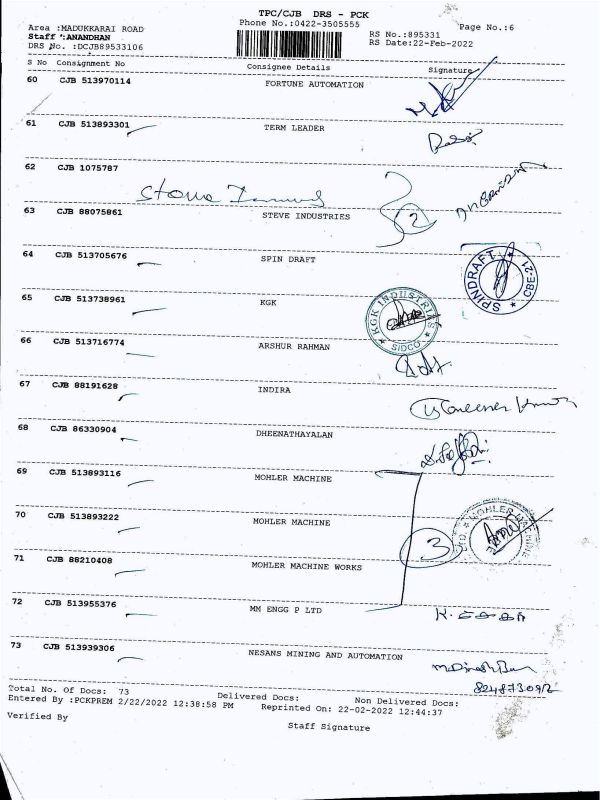 TPC/CJB DRS - PCK
Area :MADUKKARAI ROAD Phone No.:0422-3505555 Page No.:6
Staff :ANANDHAN RS No.:895331
DRS No. :DCJB89533106 RS Date:22-Feb-2022
S No Consignment No Consignee Details Signature
60 CJB 513970114 FORTUNE AUTOMATION
61 CJB 513893301 TERM LEADER
62 CJB 1075787
63 CJB 88075861 STEVE INDUSTRIES 2
64 CJB 513705676 SPIN DRAFT
SPINDRAFT CBE-21
65 CJB 513738961 KGK
KGK INDUSTRIES SIDCO
66 CJB 513716774 ARSHUR RAHMAN
67 CJB 88191628 INDIRA
68 CJB 86330904 DHEENATHAYALAN
69 CJB 513893116 MOHLER MACHINE
70 CJB 513893222 MOHLER MACHINE
3
MOHLER MACHINE
71 CJB 88210408 MOHLER MACHINE WORKS
72 CJB 513955376 MM ENGG P LTD
73 CJB 513939306 NESANS MINING AND AUTOMATION
Total No. Of Docs: 73 Delivered Docs: Non Delivered Docs:
Entered By :PCKPREM 2/22/2022 12:38:58 PM Reprinted On: 22-02-2022 12:44:37
Verified By Staff Signature